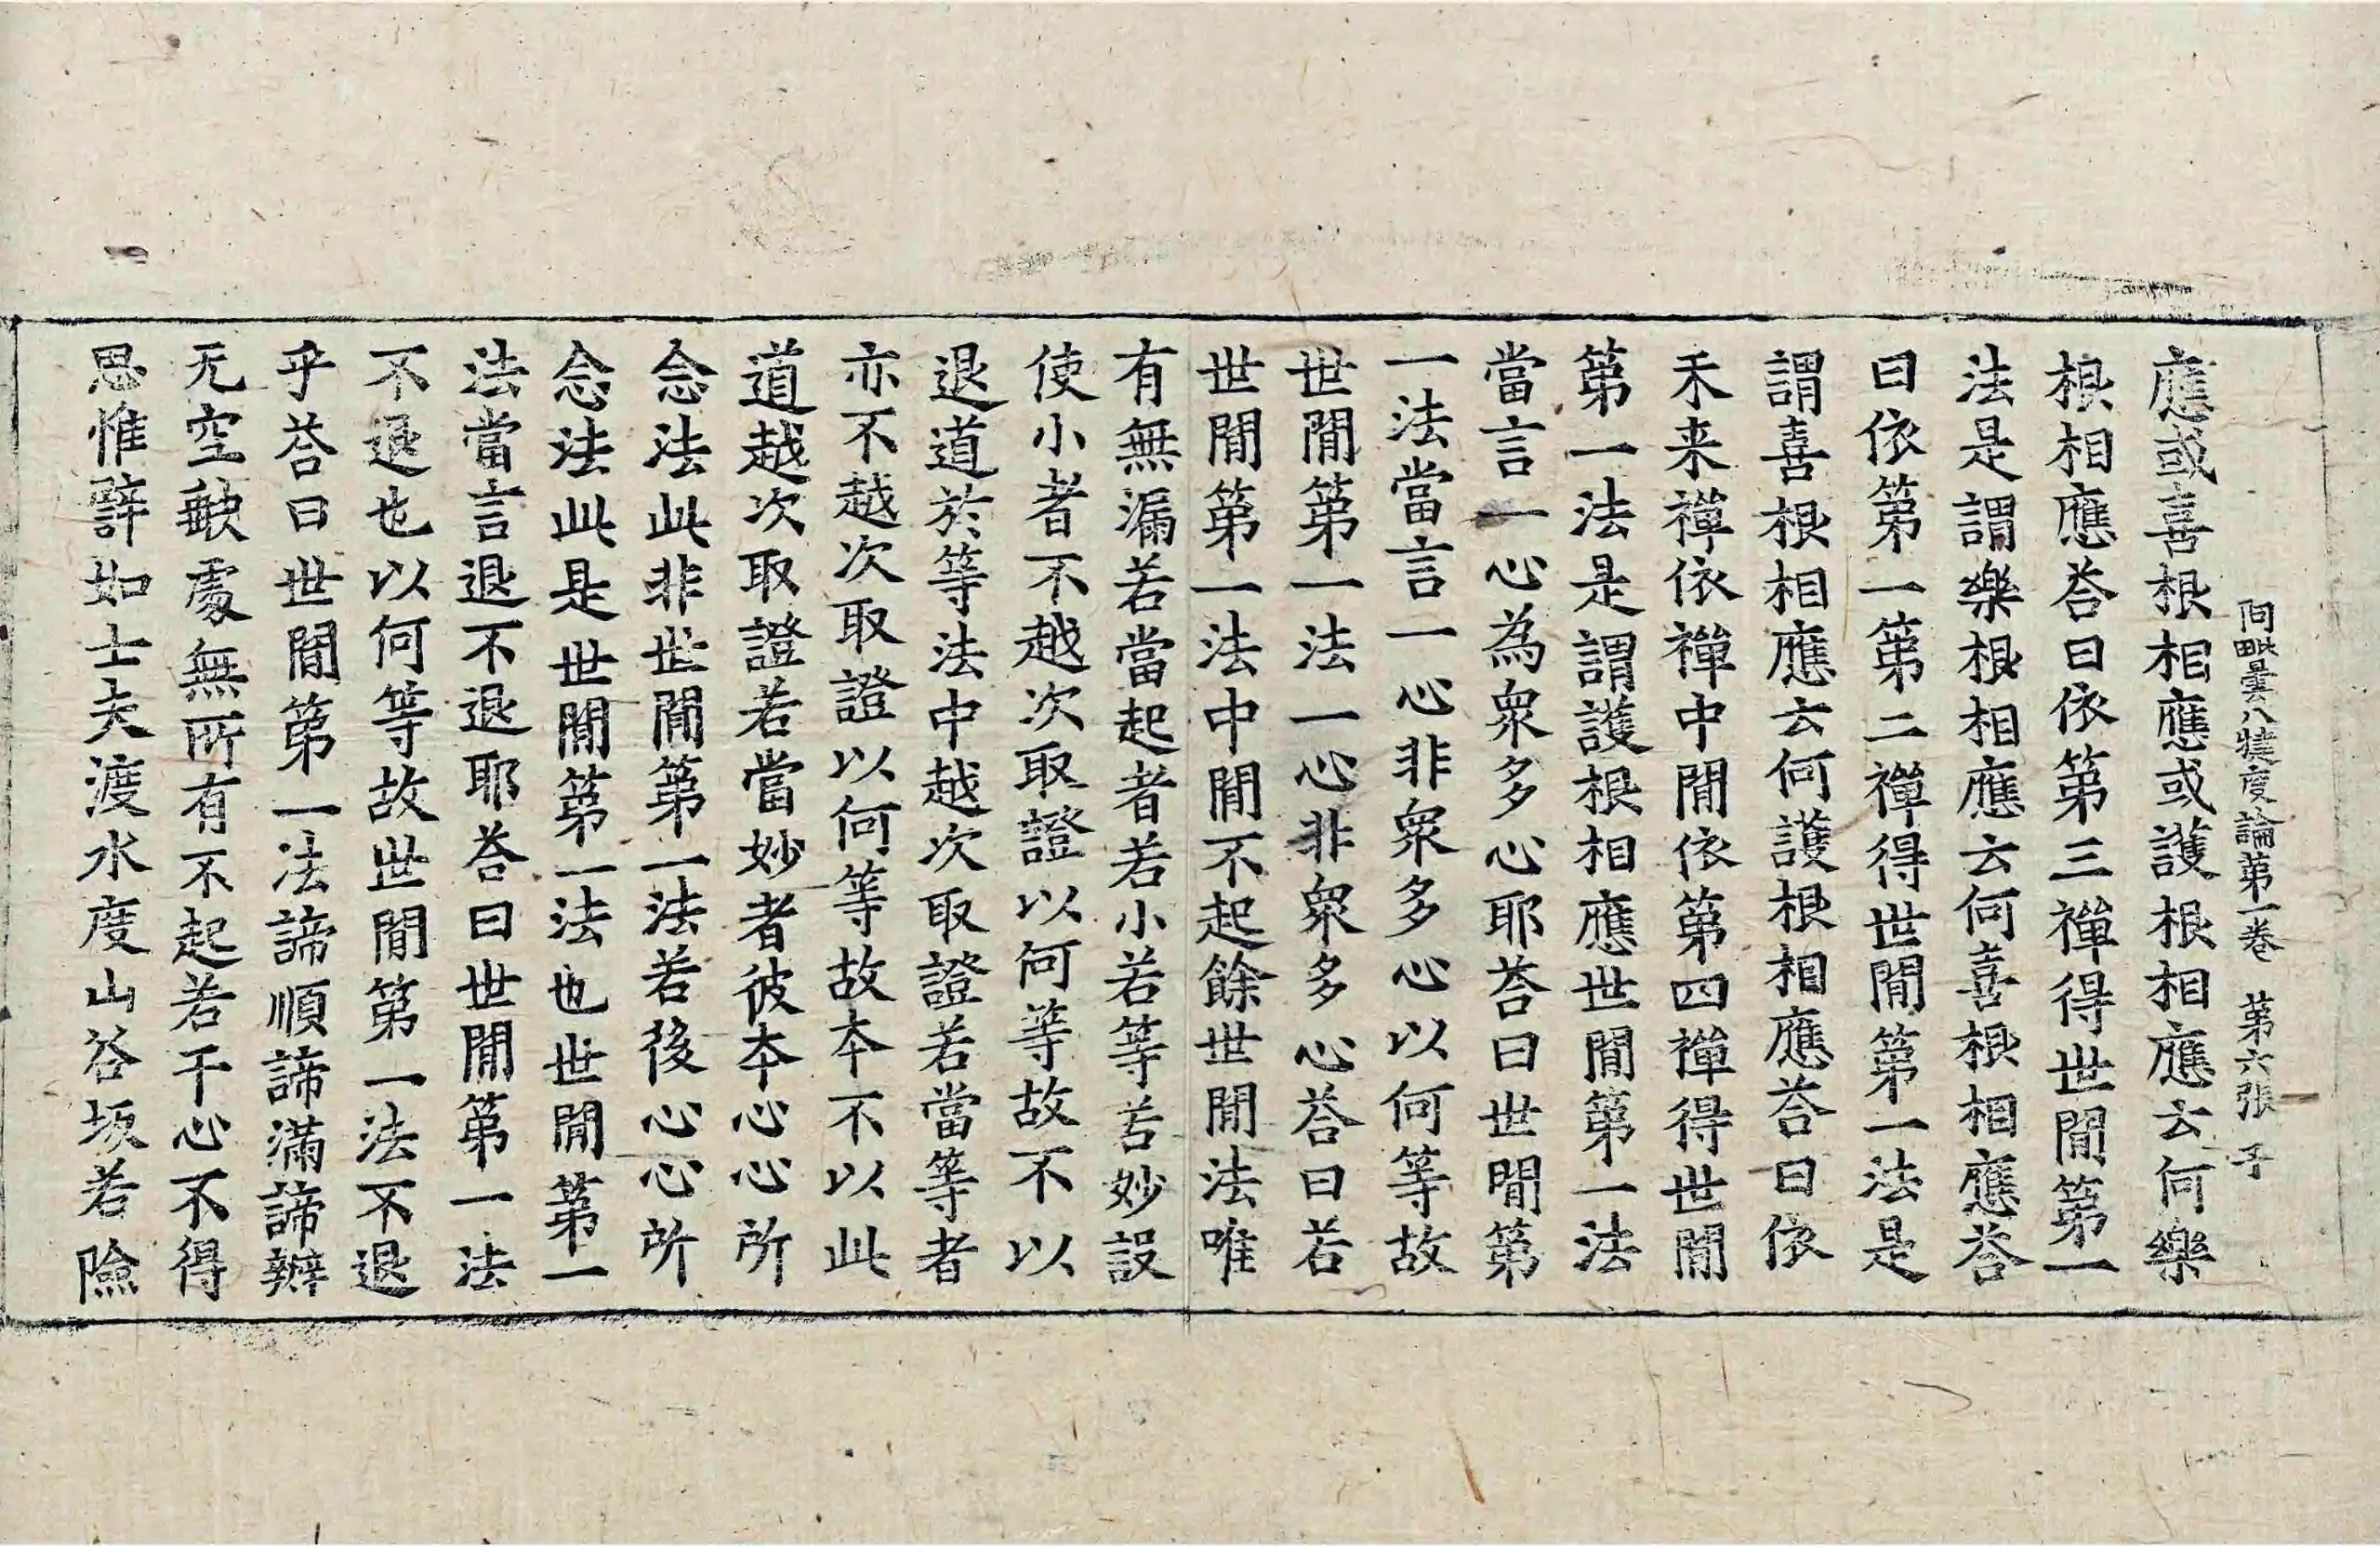 阿毗曇八犍度論第一卷　第六張　子
應或喜根相應或護根相應云何樂
根相應荅曰依第三禪得世閒第一
法是謂樂根相應云何喜根相應荅
曰依第一第二禪得世閒第一法是
謂喜根相應云何護根相應荅曰依
未来禪依禪中閒依第四禪得世閒
第一法是謂護根相應世閒第一法
當言一心為衆多心耶荅曰世閒第
一法當言一心非衆多心以何等故
世閒第一法一心非衆多心荅曰若
世閒第一法中閒不起餘世閒法唯
有無漏若當起者若小若等若妙設
使小者不越次取證以何等故不以
退道於等法中越次取證若當等者
亦不越次取證以何等故本不以此
道越次取證若當妙者彼本心心所
念法此非世閒第一法若後心心所
念法此是世閒第一法也世閒第一
法當言退不退耶荅曰世閒第一法
不退也以何等故世閒第一法不退
乎荅曰世閒第一法諦順諦滿諦辦
无空缺處無所有不起若干心不得
思惟譬如士夫渡水度山谷坂若險